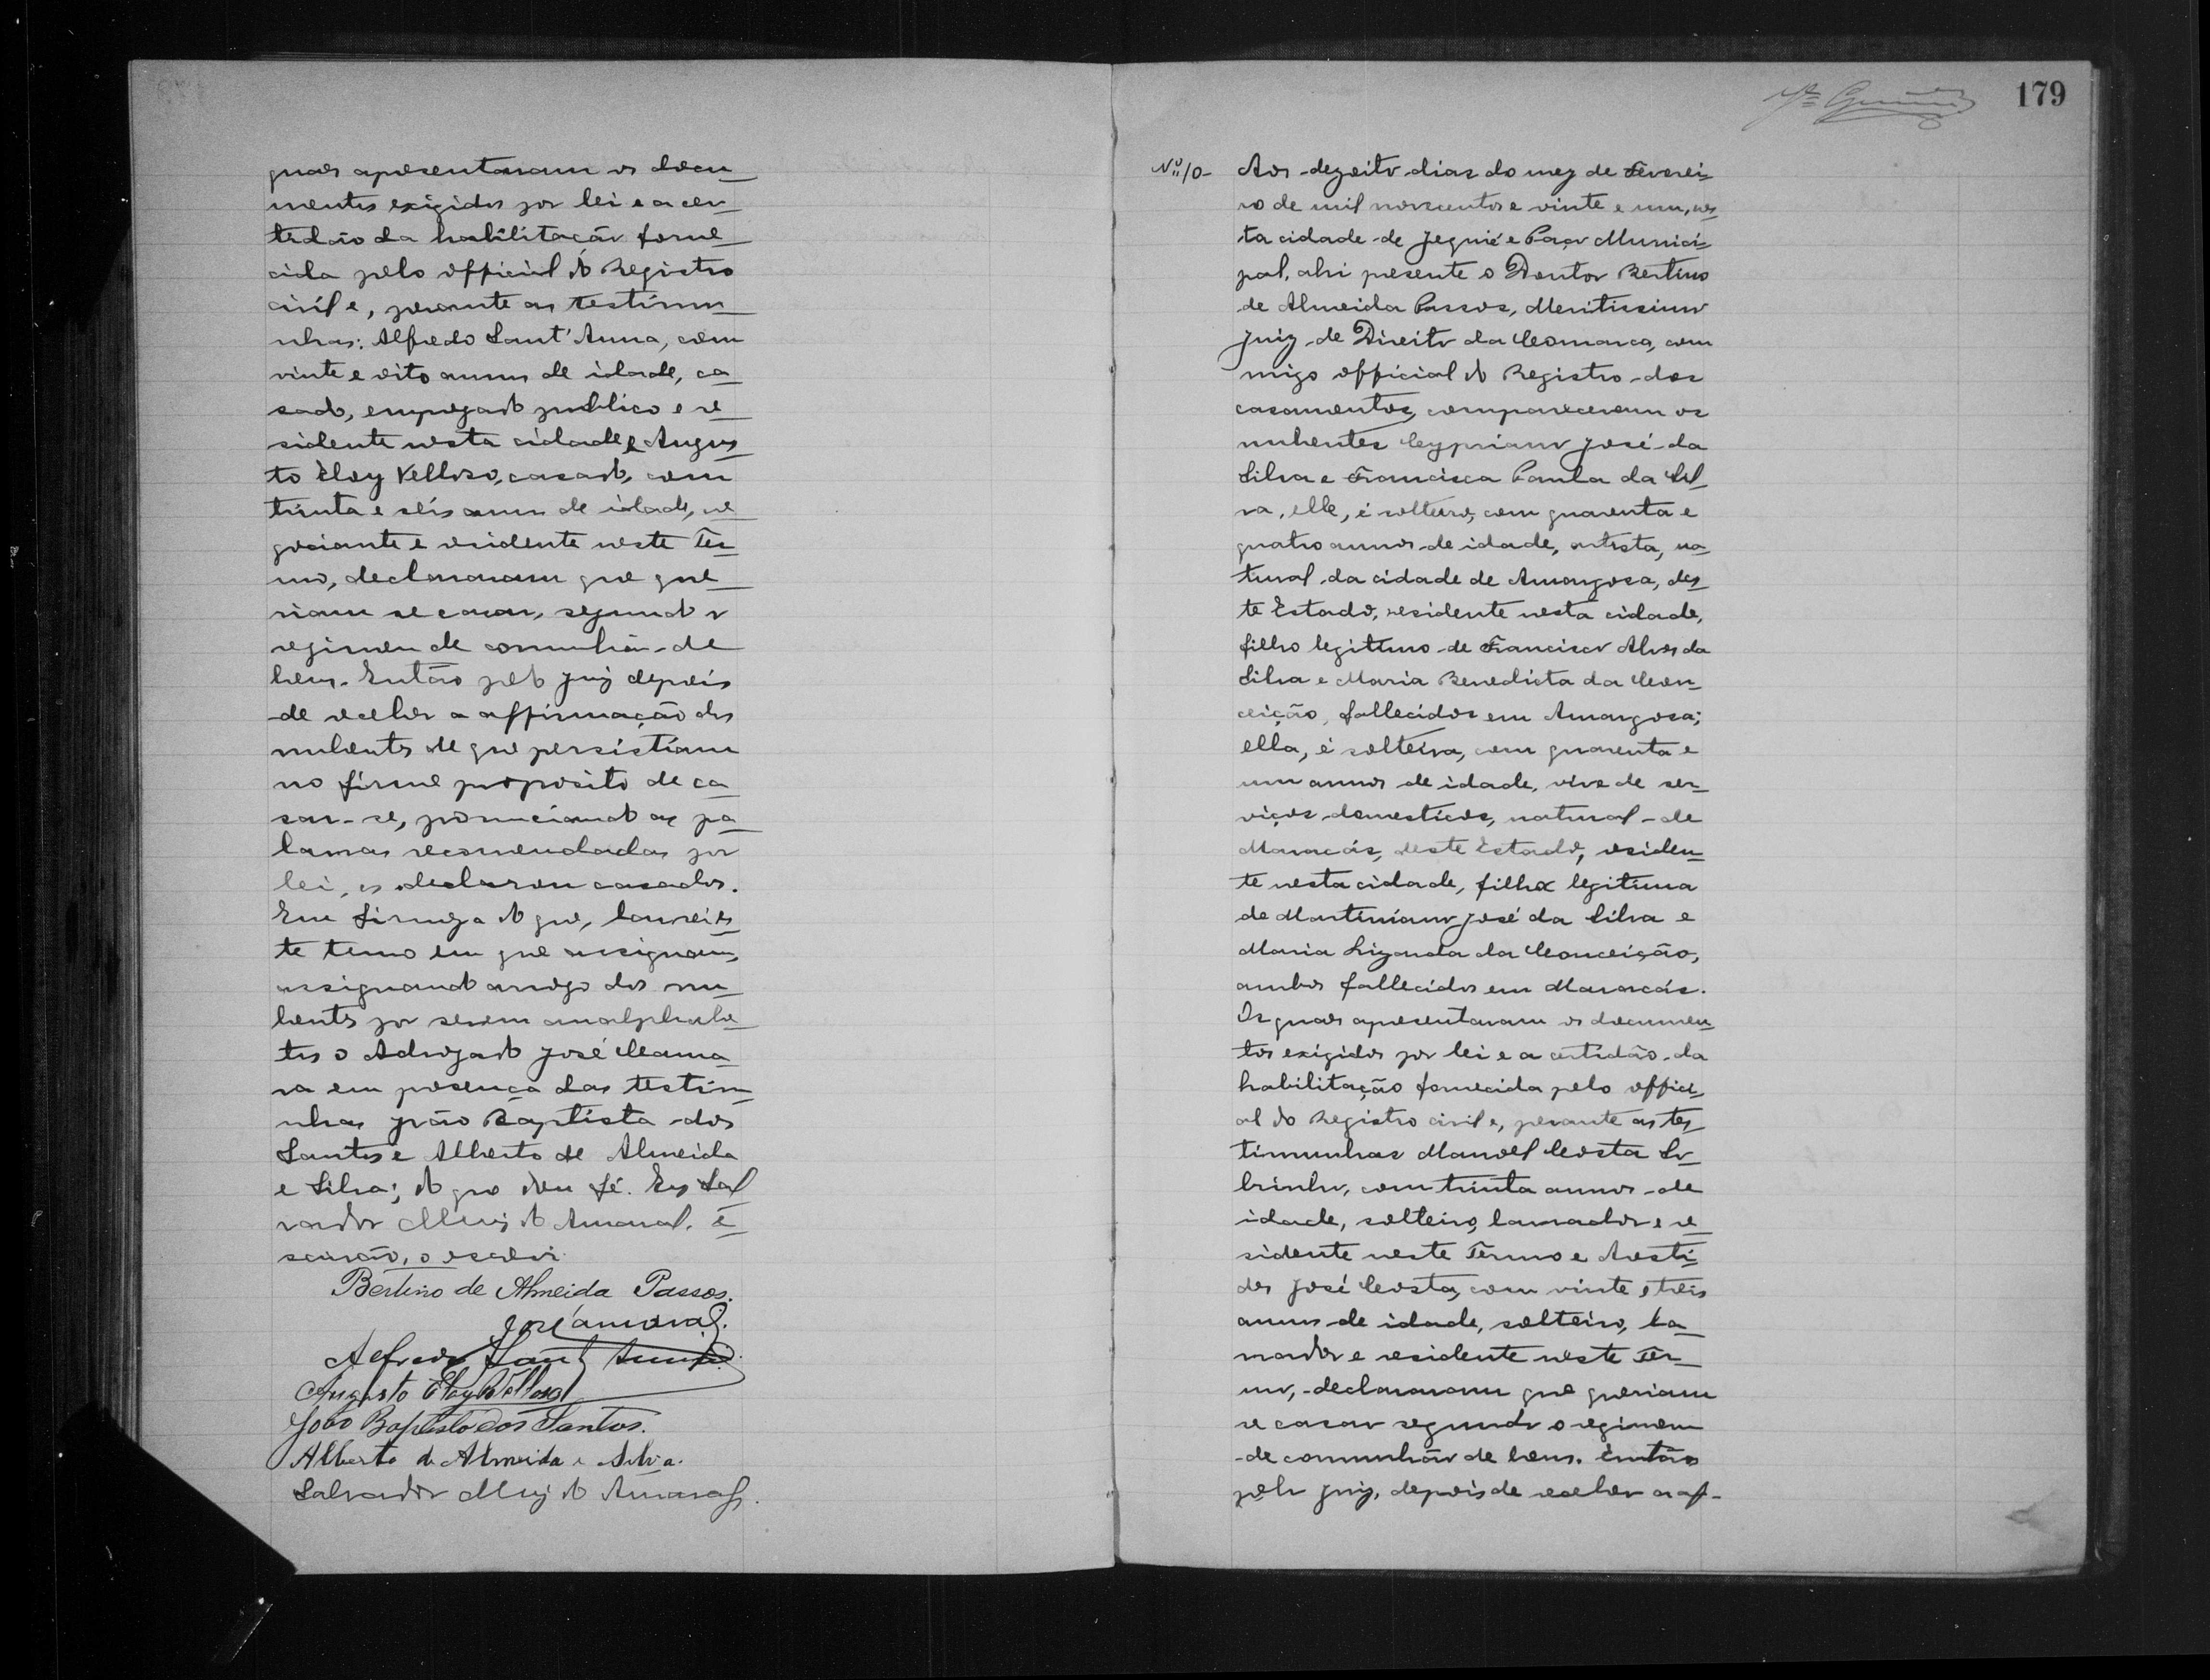 quaes apresentaram os docu-
mentos exigidos por lei e a cer-
tidão da habilitação forne-
cida pelo official do Registro
civil e, perante as testimu-
nhas: Alfredo Sant'Anna, com
vinte e oito annos de idade, ca-
sado, empregado publico e re-
sidente nesta cidade e Augus-
to Eloy Velloso, casado, com
trinta e seis annos de idade, ne-
gociante e residente neste Ter-
mo, declararam que que-
riam se casar, segundo o
regimen de comunhão de
bens. Então pelo Juiz depois
de receber a affirmação dos
nubentes de que persistiam
no firme proposito de ca-
sar-se, pronunciando as pa-
lavras recomendadas por
lei, os declarou casados.
Em firmeza do que, lavrei es-
te termo em que assignam,
assignando arogo dos nu-
bentes por serem analphabe-
tos o Advogado José
em presença das testim-
nhas João Baptista dos
Santos e Alberto de Almeida
e Silva; do que dou fé. Eu, Sal-
vador Muiz do Amaral, es-
crivão, o escrevi.
Bertino de Almeida Passos.
Alfredo Sant'Anna
Augusto Eloy Velloso
João Baptista dos Santos.
Alberto de Almeida e Silva.
Salvador Muiz do Amaral.
179
Nº 10-
Aos dezoito dias do mez de Feverei-
ro de mil novecentos e vinte e um, nes-
ta cidade de Jequié e Paço Munici-
pal, ahi presente o Doutor Bertino
de Almeida Passos, Meritissimo
Juiz de Direito da Comarca, com
migo official do Registro dos
casamentos, compareceram os
nubentes Cypriano José da
Silva e Francisca Paula da Sil-
va, elle, é solteiro, com quarenta e
quatro annos de idade, artista, na-
tural da cidade de Amargosa, des-
te Estado, residente nesta cidade,
filho legitimo de Francisco Alves da
Silva e Maria Benedicta da Con-
ceição, fallecidos em Amargosa;
ella, é solteira, com quarenta e
um annos de idade, vive de ser-
viços domesticos, natural de
Maracás, deste Estado, residen-
te nesta cidade, filha legitima
de Martiniano José da Silva e
Maria Lizarda da Conceição,
ambos fallecidos em Maracás.
Os quaes apresentaram os documen-
tos exigidos por lei e a certidão da
habilitação fornecida pelo offici-
al do Registro civil e, perante as tes-
timunhas Manoel Costa So-
brinho, com trinta annos de
idade, solteiro, lavrador e re-
sidente neste Termo e Aristi-
des José Costa, com vinte e treis
annos de idade, solteiro, la-
vrador e residente neste Ter-
mo, declararam que queriam
se casar segundo o regimem
de comunhão de bens. Então
pelo Juiz, depois de receber a af-